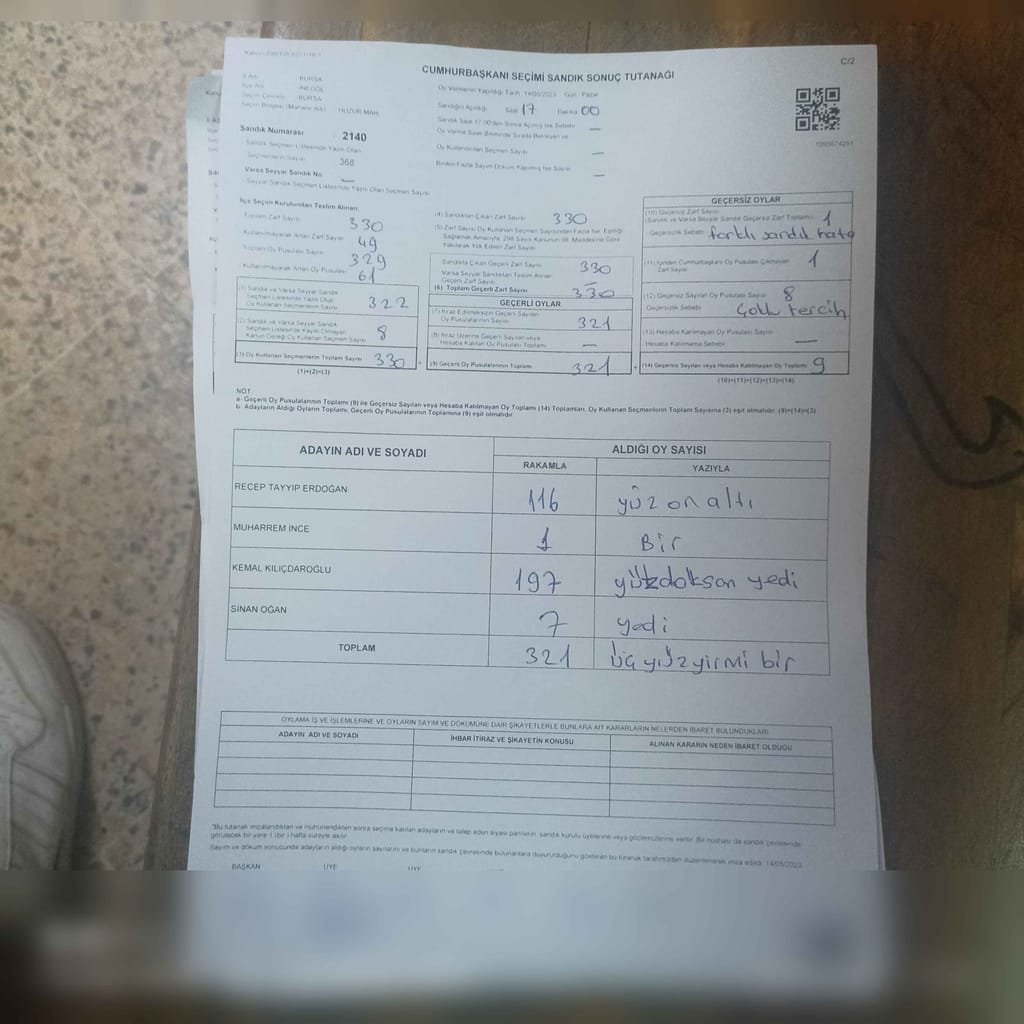 C/2
CUMHURBAŞKANI SEÇİMİ SANDIK SONUÇ TUTANAĞI
İl Adı BURSA
İlçe Adı İNEGÖL
Seçim Çevresi BURSA
Seçim Bölgesi (Muhtarlık Adı) HUZUR MAH
Oy Vermenin Yapıldığı Tarih 14/05/2023 Gün Pazar
Sandığın Açıldığı Saat 17 Dakika 00
Sandık Saat 17.00'den Sonra Açılmış İse Sebebi —
Oy Verme Saati Bitiminde Sırada Bekleyen ve
Oy Kullandırılan Seçmen Sayısı —
Birden Fazla Sayım Döküm Yapılmış İse Sayısı —
Sandık Numarası 2140
Sandık Seçmen Listesinde Yazılı Olan
Seçmenlerin Sayısı 368
Varsa Seyyar Sandık No —
Seyyar Sandık Seçmen Listesinde Yazılı Olan Seçmen Sayısı
İlçe Seçim Kurulundan Teslim Alınan
Toplam Zarf Sayısı 330
Kullanılmayarak Artan Zarf Sayısı 49
Toplam Oy Pusulası Sayısı 329
Kullanılmayarak Artan Oy Pusulası 61
(1) Sandık ve Varsa Seyyar Sandık
Seçmen Listesinde Yazılı Olup
Oy Kullanan Seçmenlerin Sayısı 322
(2) Sandık ve Varsa Seyyar Sandık
Seçmen Listesinde Kayıtlı Olmayan
Kanun Gereği Oy Kullanan Seçmen Sayısı 8
(3) Oy Kullanan Seçmenlerin Toplam Sayısı 330
(1)+(2)=(3)
(4) Sandıktan Çıkan Zarf Sayısı 330
(5) Zarf Sayısı Oy Kullanan Seçmen Sayısından Fazla İse, Eşitliği
Sağlamak Amacıyla, 298 Sayılı Kanunun 98. Maddesine Göre
Yakılarak Yok Edilen Zarf Sayısı
Sandıkta Çıkan Geçerli Zarf Sayısı 330
Varsa Seyyar Sandıktan Teslim Alınan
Geçerli Zarf Sayısı —
(6) Toplam Geçerli Zarf Sayısı 330
GEÇERLİ OYLAR
(7) İtiraz Edilmeksizin Geçerli Sayılan
Oy Pusulalarının Sayısı 321
(8) İtiraz Üzerine Geçerli Sayılan veya
Hesaba Katılan Oy Pusulası Toplamı —
(9) Geçerli Oy Pusulalarının Toplamı 321
GEÇERSİZ OYLAR
(10) Geçersiz Zarf Sayısı
(Sandık ve Varsa Seyyar Sandık Geçersiz Zarf Toplamı) 1
Geçersizlik Sebebi farklı sandık hata
(11) İçinden Cumhurbaşkanı Oy Pusulası Çıkmayan
Zarf Sayısı 1
(12) Geçersiz Sayılan Oy Pusulası Sayısı 8
Geçersizlik Sebebi Çoklu tercih
(13) Hesaba Katılmayan Oy Pusulası Sayısı
Hesaba Katılmama Sebebi —
(14) Geçersiz Sayılan veya Hesaba Katılmayan Oy Toplamı 9
(10)+(11)+(12)+(13)=(14)
NOT:
a- Geçerli Oy Pusulalarının Toplamı (9) ile Geçersiz Sayılan veya Hesaba Katılmayan Oy Toplamı (14) Toplamları, Oy Kullanan Seçmenlerin Toplam Sayısına (3) eşit olmalıdır. (9)+(14)=(3)
b- Adayların Aldığı Oyların Toplamı, Geçerli Oy Pusulalarının Toplamına (9) eşit olmalıdır.
ADAYIN ADI VE SOYADI ALDIĞI OY SAYISI
RAKAMLA YAZIYLA
RECEP TAYYİP ERDOĞAN 116 yüz on altı
MUHARREM İNCE 1 Bir
KEMAL KILIÇDAROĞLU 197 yüzdoksan yedi
SİNAN OĞAN 7 yedi
TOPLAM 321 üç yüz yirmi bir
OYLAMA İŞ VE İŞLEMLERİNE VE OYLARIN SAYIM VE DÖKÜMÜNE DAİR ŞİKAYETLERLE BUNLARA AİT KARARLARIN NELERDEN İBARET BULUNDUKLARI
ADAYIN ADI VE SOYADI İHBAR İTİRAZ VE ŞİKAYETİN KONUSU ALINAN KARARIN NEDEN İBARET OLDUĞU
"Bu tutanak imzalandıktan ve mühürlendikten sonra seçime katılan adayların ve talep eden siyasi partilerin sandık kurulu üyelerine veya gözlemcilerine verilir. Bir nüshası da sandık çevresinde
görülecek bir yere 1 (bir) hafta süreyle asılır.
Sayım ve döküm sonucunda adayların aldığı oyların sayılarını ve bunların sandık çevresinde bulunanlara duyurulduğunu gösteren bu tutanak tarafımızdan düzenlenerek imza edildi. 14/05/2023
BAŞKAN ÜYE ÜYE